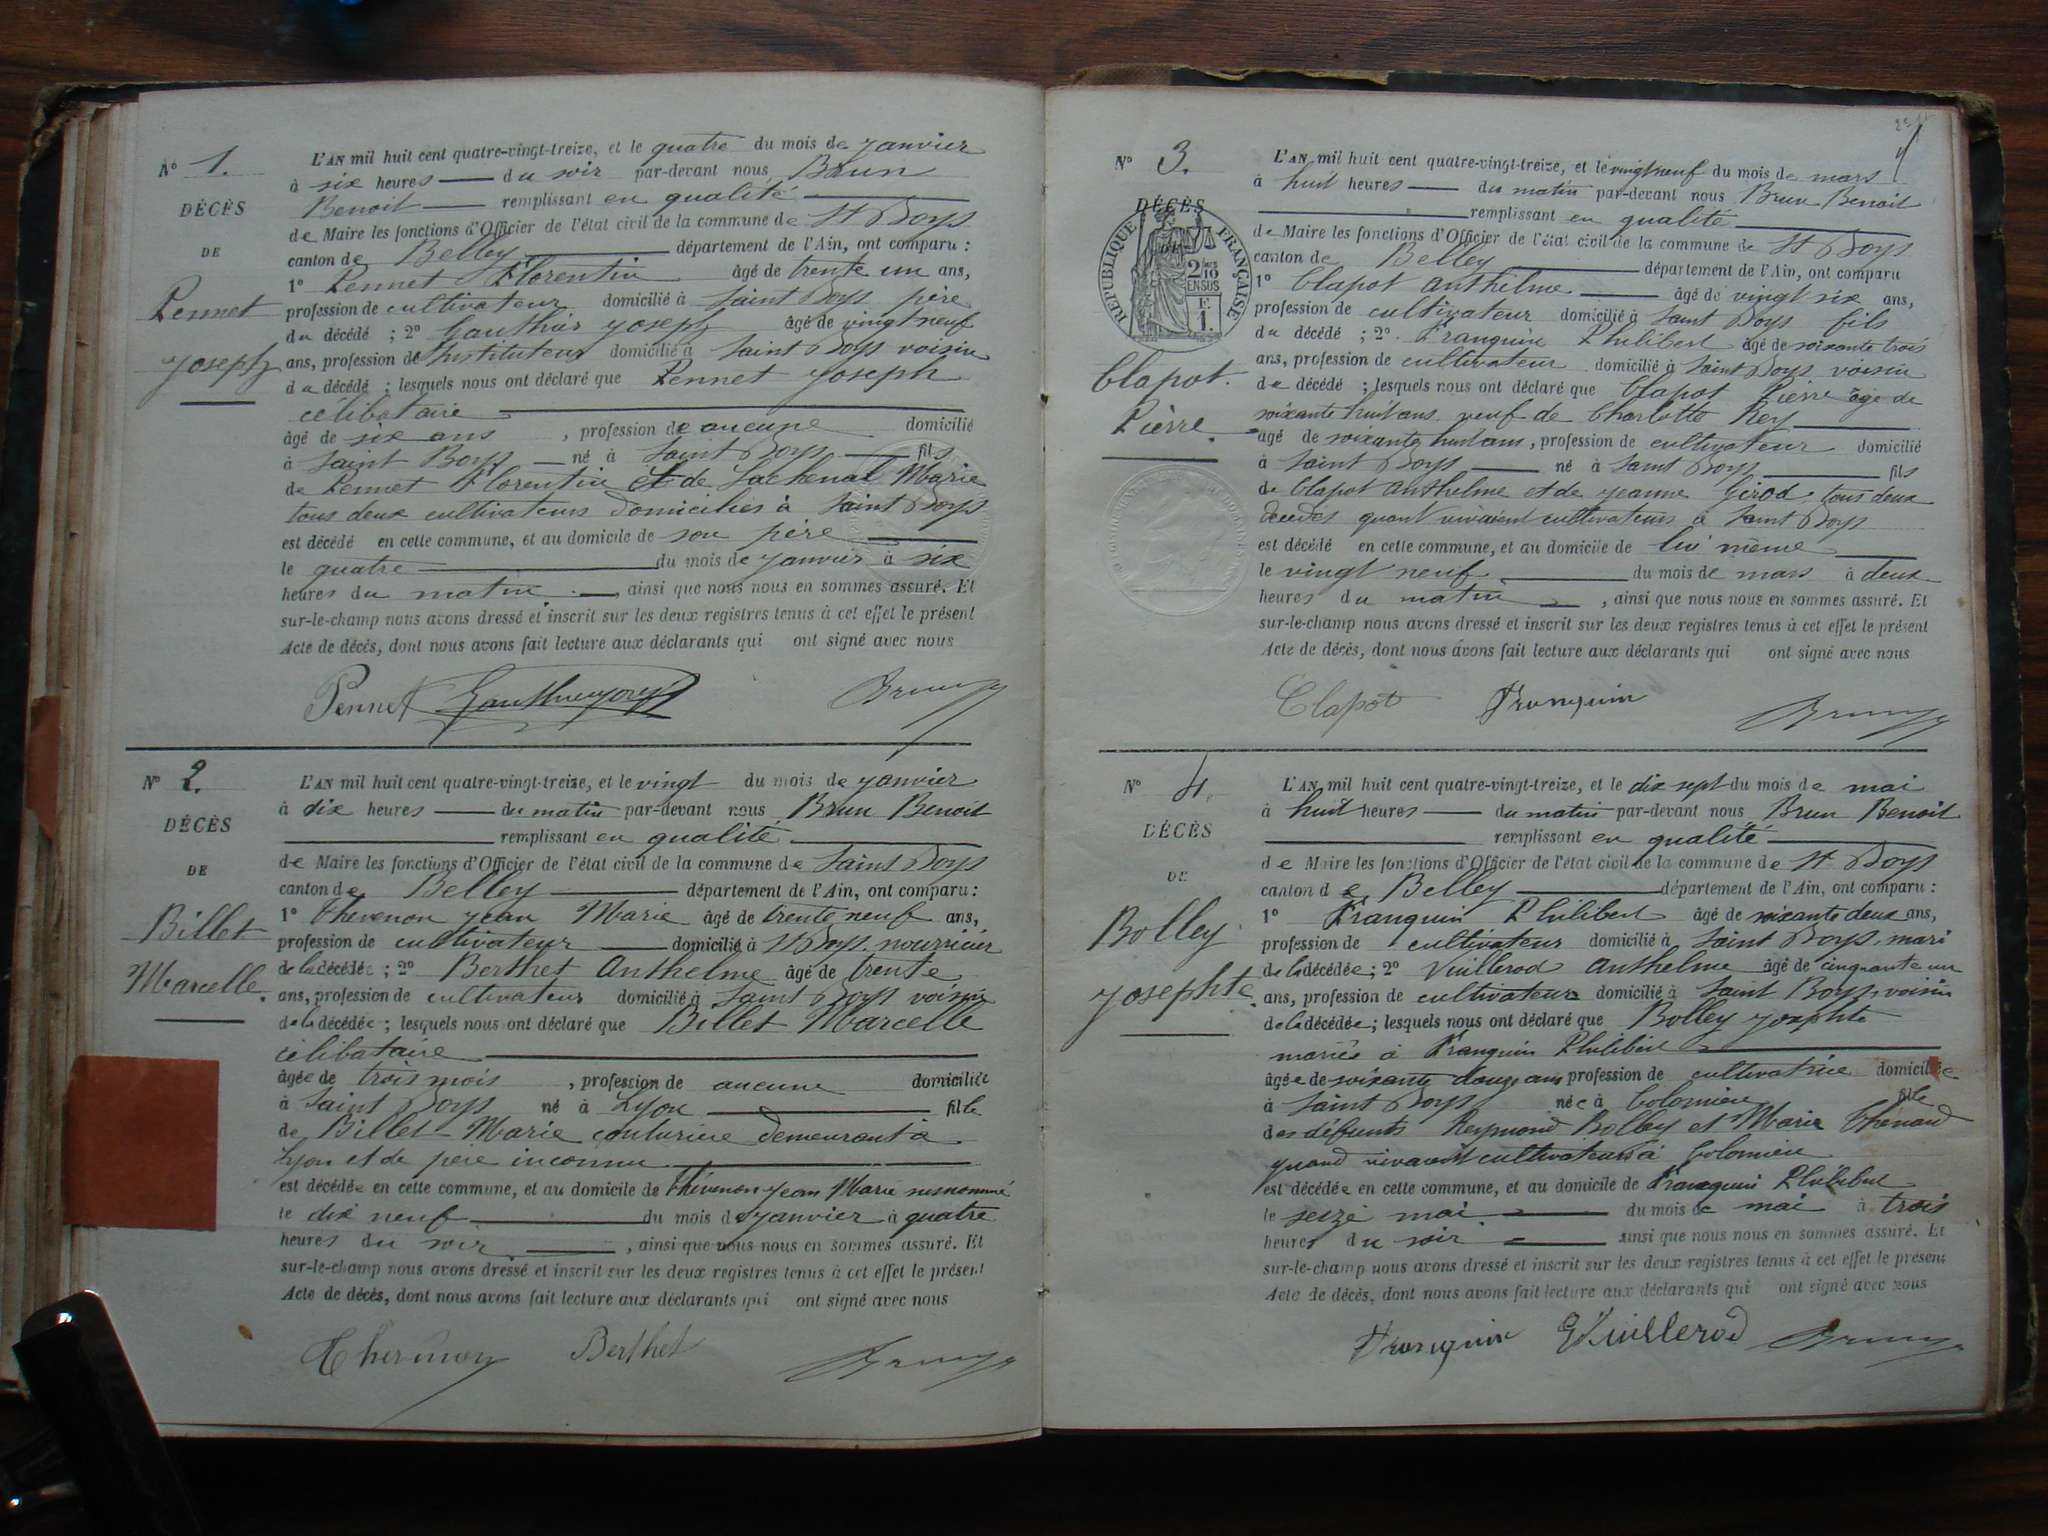 N° 1.
DÉCÈS
DE
Pennet
Joseph
L'AN mil huit cent quatre-vingt-treize, et le quatre du mois de janvier
à six heures du soir par-devant nous Brun
Benoit remplissant en qualité
de Maire les fonctions d'Officier de l'état civil de la commune de St Boys
canton de Belley département de l'Ain, ont comparu :
1° Pennet Florentin âgé de trente un ans,
profession de cultivateur domicilié à Saint Boys père
du décédé ; 2° Gauthier Joseph âgé de vingt neuf
ans, profession de Instituteur domicilié à Saint Boys voisin
du décédé ; lesquels nous ont déclaré que Pennet Joseph
célibataire
âgé de six ans , profession de aucune domicilié
à Saint Boys né à Saint Boys fils
de Pennet Florentin et de Lachenal Marie
tous deux cultivateurs domiciliés à Saint Boys
est décédé en cette commune, et au domicile de son père
le quatre du mois de janvier à six
heures du matin , ainsi que nous nous en sommes assuré. Et
sur-le-champ nous avons dressé et inscrit sur les deux registres tenus à cet effet le présent
Acte de décès, dont nous avons fait lecture aux déclarants qui ont signé avec nous
Pennet Gauthier Joseph Brun
N° 2.
DÉCÈS
DE
Billet
Marcelle.
L'AN mil huit cent quatre-vingt-treize, et le vingt du mois de janvier
à dix heures du matin par-devant nous Brun Benoit
remplissant en qualité
de Maire les fonctions d'Officier de l'état civil de la commune de Saint Boys
canton de Belley département de l'Ain, ont comparu :
1° Thevenon Jean Marie âgé de trente neuf ans,
profession de cultivateur domicilié à St Boys nourricier
de la décédée ; 2° Berthet Anthelme âgé de trente
ans, profession de cultivateur domicilié à Saint Boys voisin
de la décédée ; lesquels nous ont déclaré que Billet Marcelle
célibataire
âgée de trois mois , profession de aucune domiciliée
à Saint Boys né à Lyon fille
de Billet Marie couturière demeurant à
Lyon et de père inconnu
est décédée en cette commune, et au domicile de Thévenon Jean Marie susnommé
le dix neuf du mois de janvier à quatre
heures du soir , ainsi que nous nous en sommes assuré. Et
sur-le-champ nous avons dressé et inscrit sur les deux registres tenus à cet effet le présent
Acte de décès, dont nous avons fait lecture aux déclarants qui ont signé avec nous
Thevenon Berthet Brun
N° 3.
DÉCÈS
DE
RÉPUBLIQUE FRANÇAISE
2/10 EN SUS
F. 1.
Clapot.
Pierre.
L'AN mil huit cent quatre-vingt-treize, et le vingt neuf du mois de mars
à huit heures du matin par-devant nous Brun Benoit
remplissant en qualité
de Maire les fonctions d'Officier de l'état civil de la commune de St Boys
canton de Belley département de l'Ain, ont comparu
1° Clapot Anthelme âgé de vingt six ans,
profession de cultivateur domicilié à Saint Boys fils
du décédé ; 2° Franquin Philibert âgé de soixante trois
ans, profession de cultivateur domicilié à Saint Boys voisin
du décédé ; lesquels nous ont déclaré que Clapot Pierre âgé de
soixante huit ans veuf de Charlotte Rey
âgé de soixante huit ans, profession de cultivateur domicilié
à Saint Boys né à Saint Boys fils
de Clapot Anthelme et de Jeanne Girod, tous deux
décédés quant vivaient cultivateurs à Saint Boys
est décédé en cette commune, et au domicile de lui même
le vingt neuf du mois de mars à deux
heures du matin , ainsi que nous nous en sommes assuré. Et
sur-le-champ nous avons dressé et inscrit sur les deux registres tenus à cet effet le présent
Acte de décès, dont nous avons fait lecture aux déclarants qui ont signé avec nous
Clapot Franquin Brun
N° 4.
DÉCÈS
DE
Bolley
Josephte.
L'AN mil huit cent quatre-vingt-treize, et le dix sept du mois de mai
à huit heures du matin par-devant nous Brun Benoit
remplissant en qualité
de Maire les fonctions d'Officier de l'état civil de la commune de St Boys
canton de Belley département de l'Ain, ont comparu :
1° Franquin Philibert âgé de soixante deux ans,
profession de cultivateur domicilié à Saint Boys, mari
de la décédée ; 2° Vuillerod Anthelme âgé de cinquante un
ans, profession de cultivateur domicilié à Saint Boys, voisin
de la décédée ; lesquels nous ont déclaré que Bolley Josephte
mariés à Franquin Philibert
âgée de soixante douze ans profession de cultivatrice domiciliée
à Saint Boys née à Colomieu fille
des défunts Reymond Bolley et Marie Thénard
quand vivaient cultivateurs à Colomieu
est décédée en cette commune, et au domicile de Franquin Philibert
le seize mai du mois de mai à trois
heures du soir ainsi que nous nous en sommes assuré. Et
sur-le-champ nous avons dressé et inscrit sur les deux registres tenus à cet effet le présent
Acte de décès, dont nous avons fait lecture aux déclarants qui ont signé avec nous
Franquin Vuillerod Brun